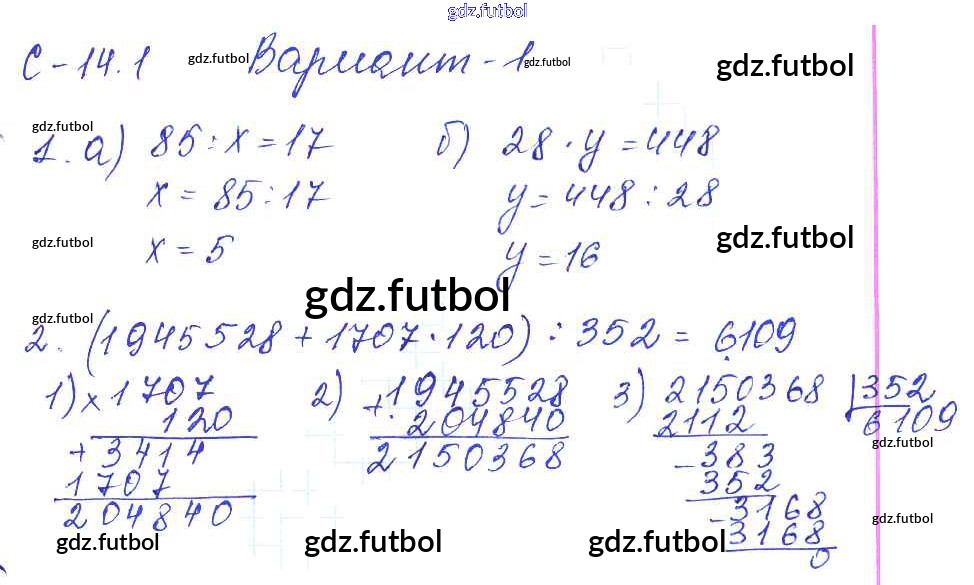 gdz.futbol
С-14.1 gdz.futbol Вариант-1 gdz.futbol gdz.futbol
gdz.futbol
1. а) 85 : x = 17 б) 28 · y = 448
x = 85 : 17 y = 448 : 28
gdz.futbol x = 5 y = 16 gdz.futbol
gdz.futbol
gdz.futbol
2. (1945528 + 1707 · 120) : 352 = 6109
1) × 1707 2) + 1945528 3) 2150368 | 352
120 204840 2112 6109
+ 3414 2150368 - 383 gdz.futbol
1707 352
204840 - 3168 gdz.futbol
gdz.futbol gdz.futbol gdz.futbol 3168
0